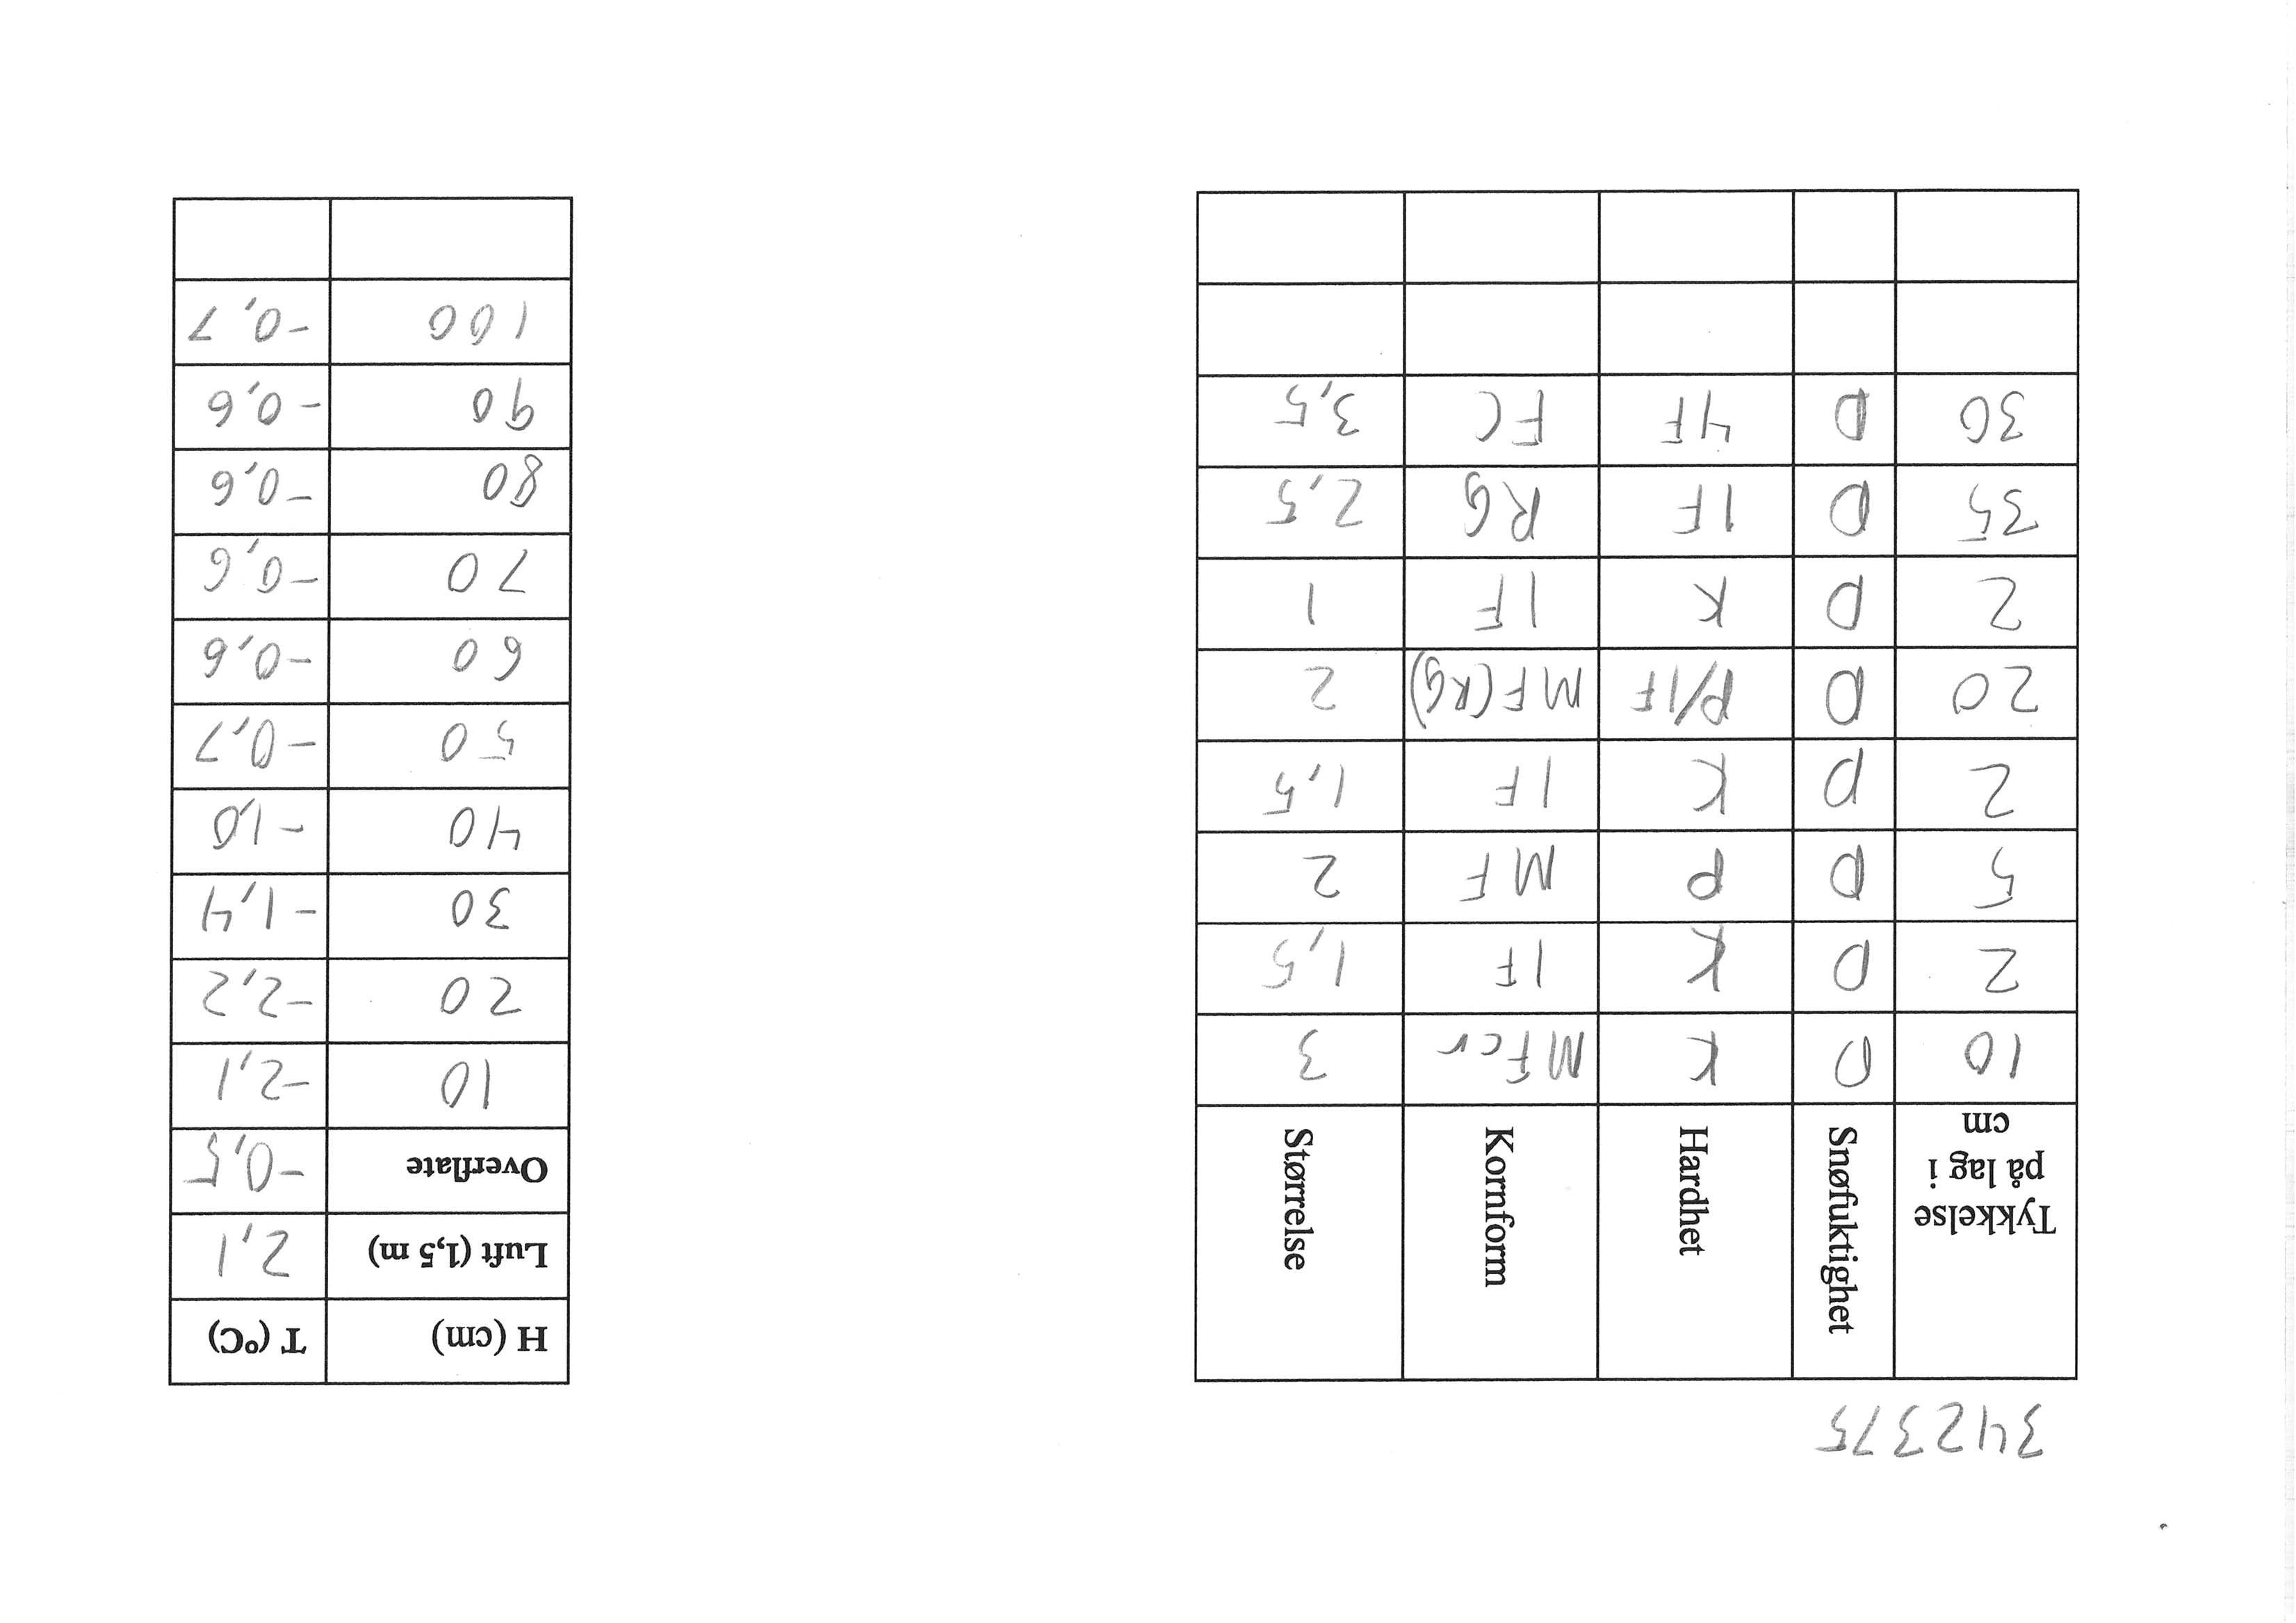 342375
Tykkelse på lag i cm Snøfuktighet Hardhet Kornform Størrelse
10 D K MFcr 3
2 D K IF 1,5
5 D P MF 2
2 D K IF 1,5
20 D P/1F MF(RG) 2
2 D K IF 1
35 D 1F RG 2,5
30 D 4F FC 3,5
H (cm) T (ºC)
Luft (1,5 m) 2,1
Overflate -0,5
10 -2,1
20 -2,2
30 -1,4
40 -1,0
50 -0,7
60 -0,6
70 -0,6
80 -0,6
90 -0,6
100 -0,7